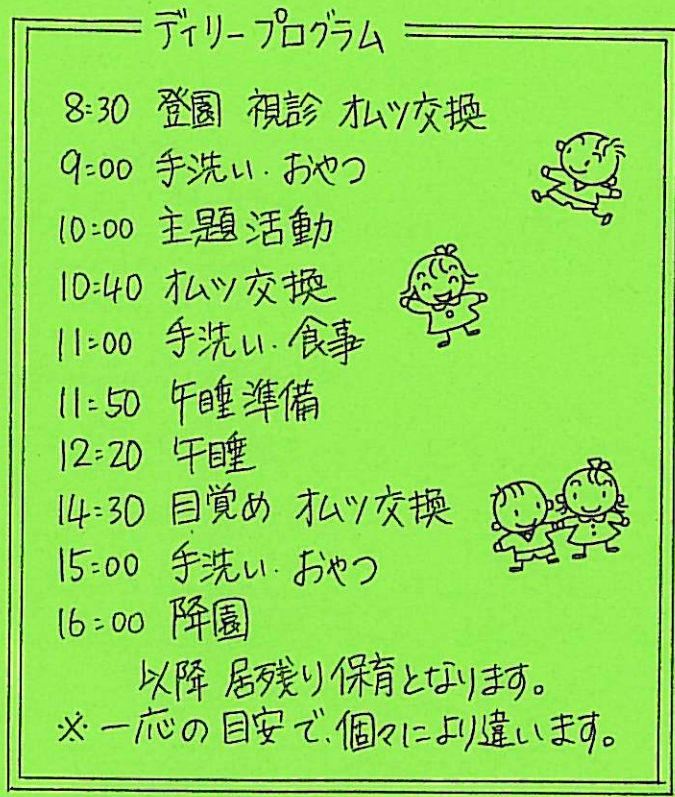 デイリープログラム
8:30 登園 視診 オムツ交換
9:00 手洗い・おやつ
10:00 主題活動
10:40 オムツ交換
11:00 手洗い・食事
11:50 午睡準備
12:20 午睡
14:30 目覚め オムツ交換
15:00 手洗い・おやつ
16:00 降園
以降 居残り保育となります。
※一応の目安で、個々により違います。